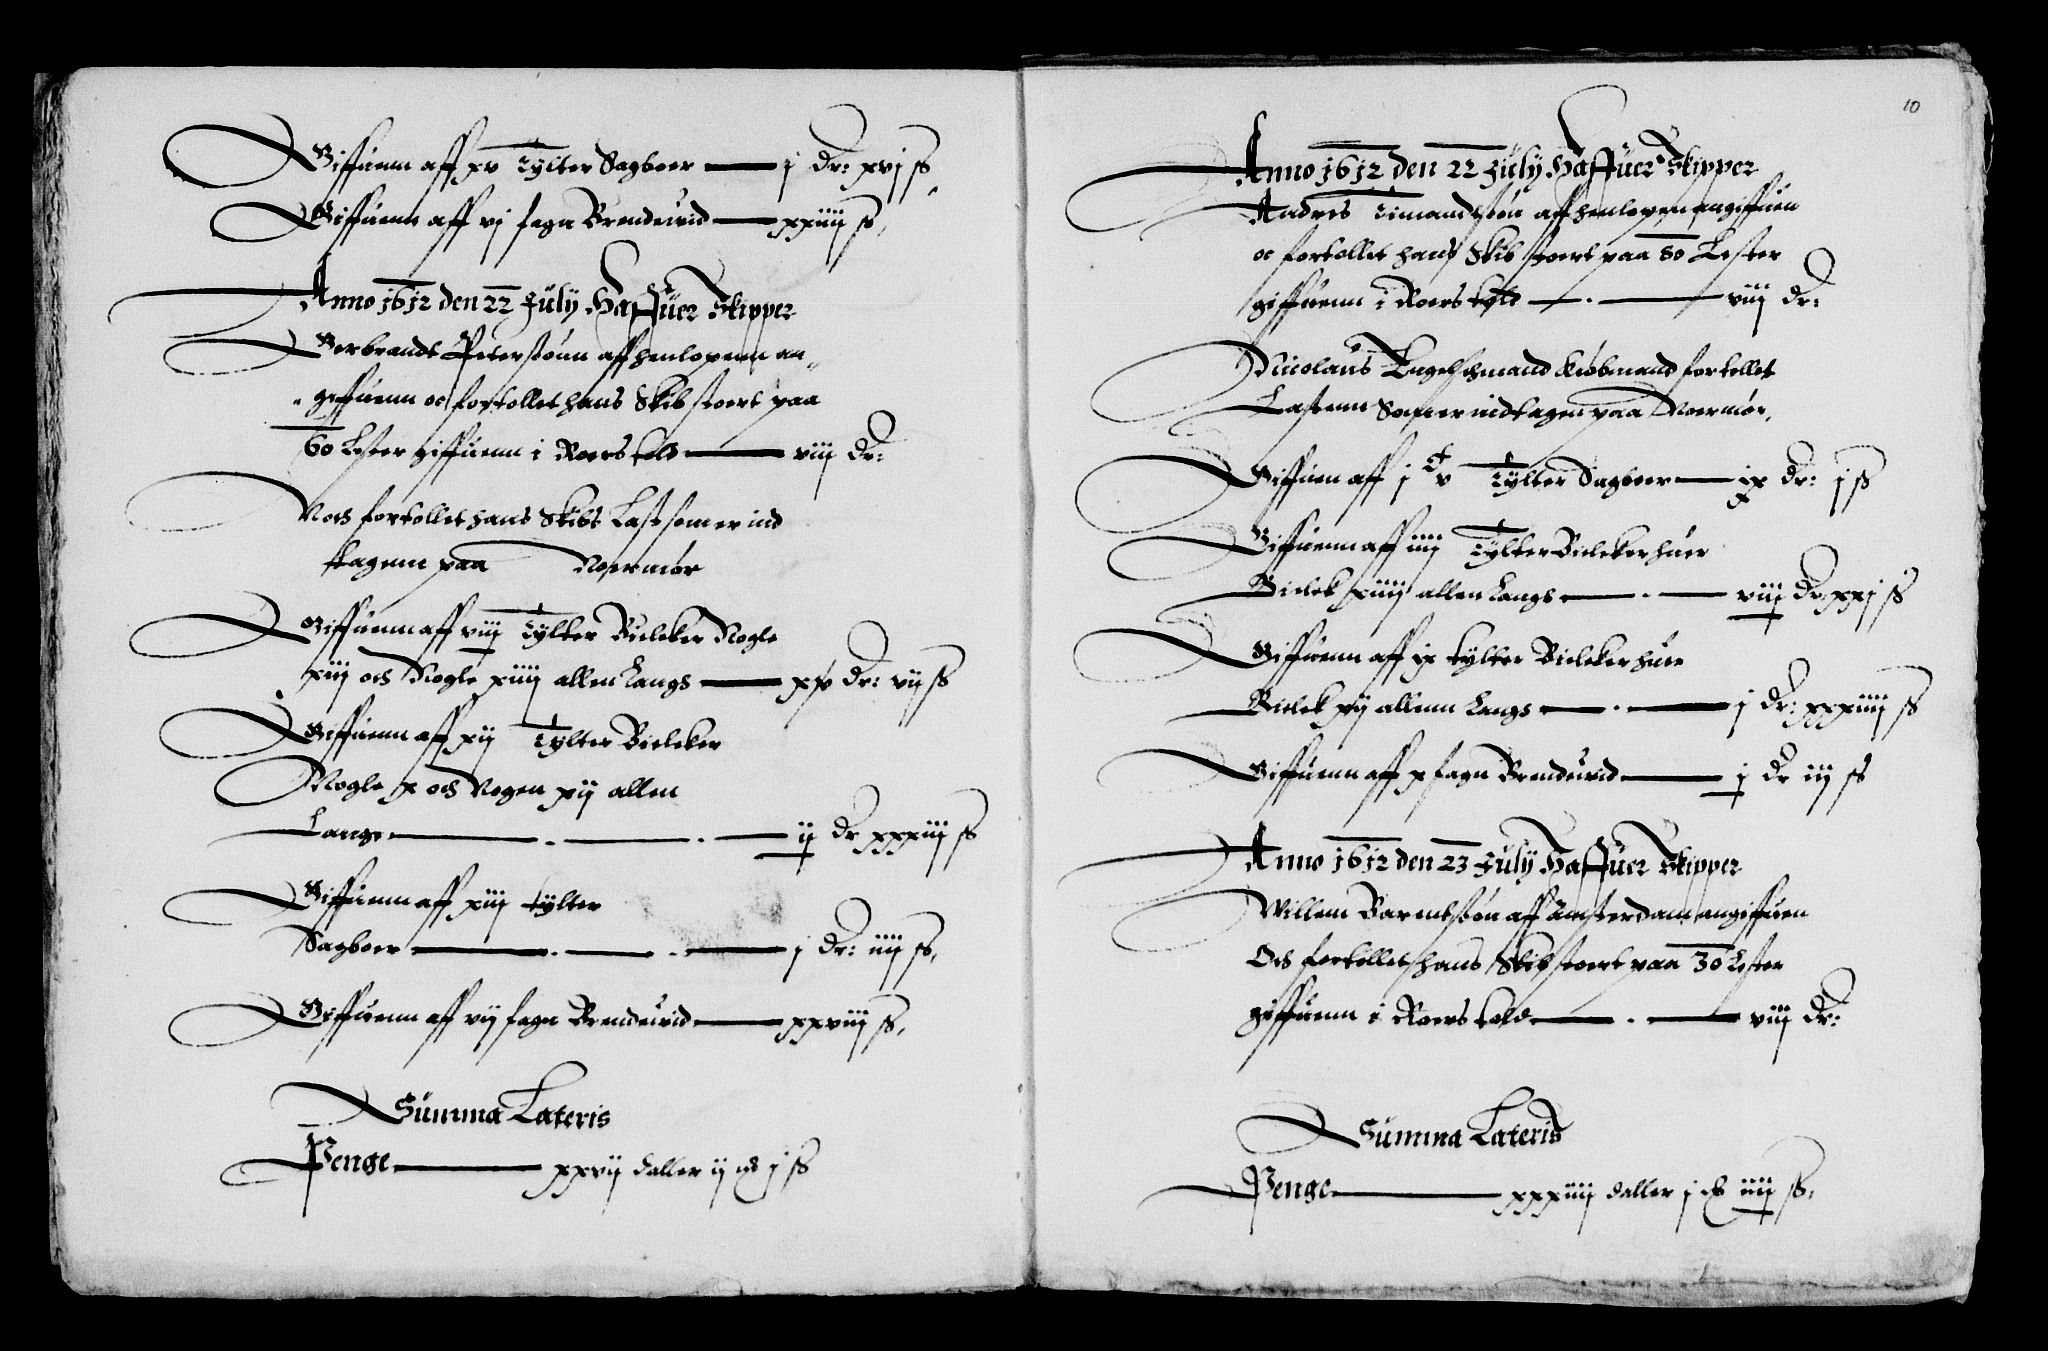 Giffuenn aff xv Tylter Sagboer — j dr: xvj ß
Giffuenn aff vj fagn Brendeuid — xxiiij ß,
Anno 1612 den 22 July Haffuer Skipper
Gerbrandt Peterssønn aff henlopenn an„
„ geffuenn oc fortollet hans Skib stoert paa
60 Lester giffuenn i Roers told — viij dr:
Noch fortollet hans Skibs Last som er ind
tagenn paa Noermør
Giffuenn aff viij Tylter Bieleker Nogle
xiij och Nogle xiiij allen Langs — dr: vij ß
Giffuenn aff xij Tylter Bieleker
Nogle x och Nogen xij allen
Lange — . — . — ij dr xxxiij ß
Giffuenn aff xiij tylter
Sagboer — . — . — j dr: iiij ß,
Giffuenn aff vij fagn Brendeuid — xxviij ß,
Summa Lateris
Penge — xxvij daller ij j ß
10
Anno 1612 den 22 July Haffuer Skipper
Andres Simandssøn aff henlopen angiffuen
oc fortollet hans Skib stoert paa 80 Lester
giffuenn i Roers told — . — viij dr:
Nicolaus Engelschmand kiøbmand fortollet
Lastenn Som er indtagen paa Noermør,
Giffuen aff j c v Tylter Sagboer — ix dr: j ß
Giffuenn aff iiij Tylter Bieleker huer
Bielek xiiij allen Langs — . — viij dr: xxj ß
Giffuenn aff ix tylter Bieleker huer
Bielek xij allenn Langs — . — j dr: xxxiiij ß
Giffuenn aff x fagn Brendeuid — j dr iij ß
Anno 1612 den 23 July Haffuer Skipper
Willem Barentssøn aff Amsterdam angiffuen
Och fortollet hans Skib stoert paa 30 Lester
giffuenn i Roers told — . — viij dr:
Summa Lateris
Penge — xxxiiij daller j iiij ß,